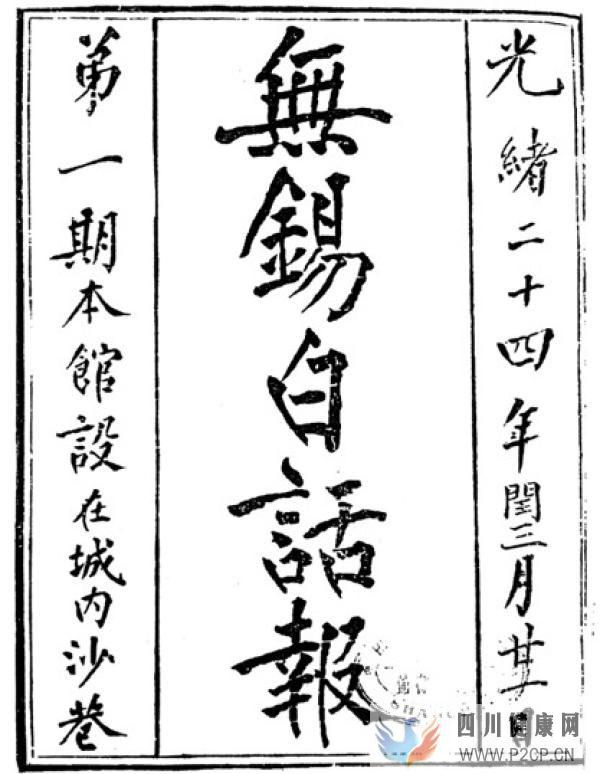 光緒二十四年閏三月廿一日
無錫白話報
第一期本館設在城内沙巷
四川健康网
WWW.P2CP.CN